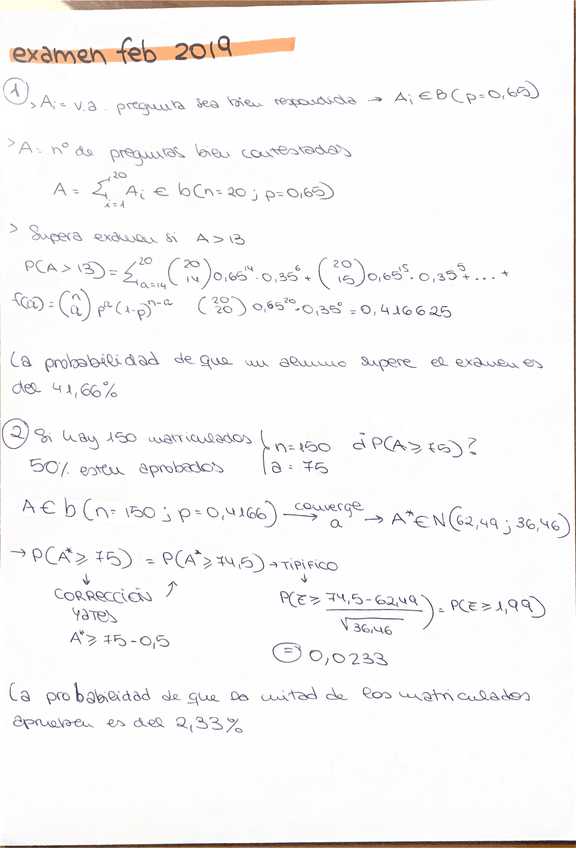 examen feb 2019
① > Ai = v.a. pregunta sea bien respondida → Ai ∈ B(p=0,65)
> A: nº de preguntas bien contestadas
A = Σ_{i=1}^{20} Ai ∈ b(n=20; p=0,65)
> Supera examen si A>13
P(A>13) = Σ_{a=14}^{20} (20 14) 0,65^14 · 0,35^6 + (20 15) 0,65^15 · 0,35^5 + ... +
f(a) = (n a) p^a (1-p)^{n-a} (20 20) 0,65^20 · 0,35^0 = 0,416625
La probabilidad de que un alumno supere el examen es
del 41,66%
② Si hay 150 matriculados { n=150 ¿P(A≥75)?
50% esten aprobados { a = 75
A ∈ b(n=150; p=0,4166) converge a → A* ∈ N(62,49; 36,46)
→ P(A*≥75) = P(A*≥74,5) → TIPIFICO
CORRECCIÓN P(Z≥ 74,5-62,49 / √36,46) = P(Z≥1,99)
YATES
A*≥75-0,5 = 0,0233
La probabilidad de que la mitad de los matriculados
aprueben es del 2,33%